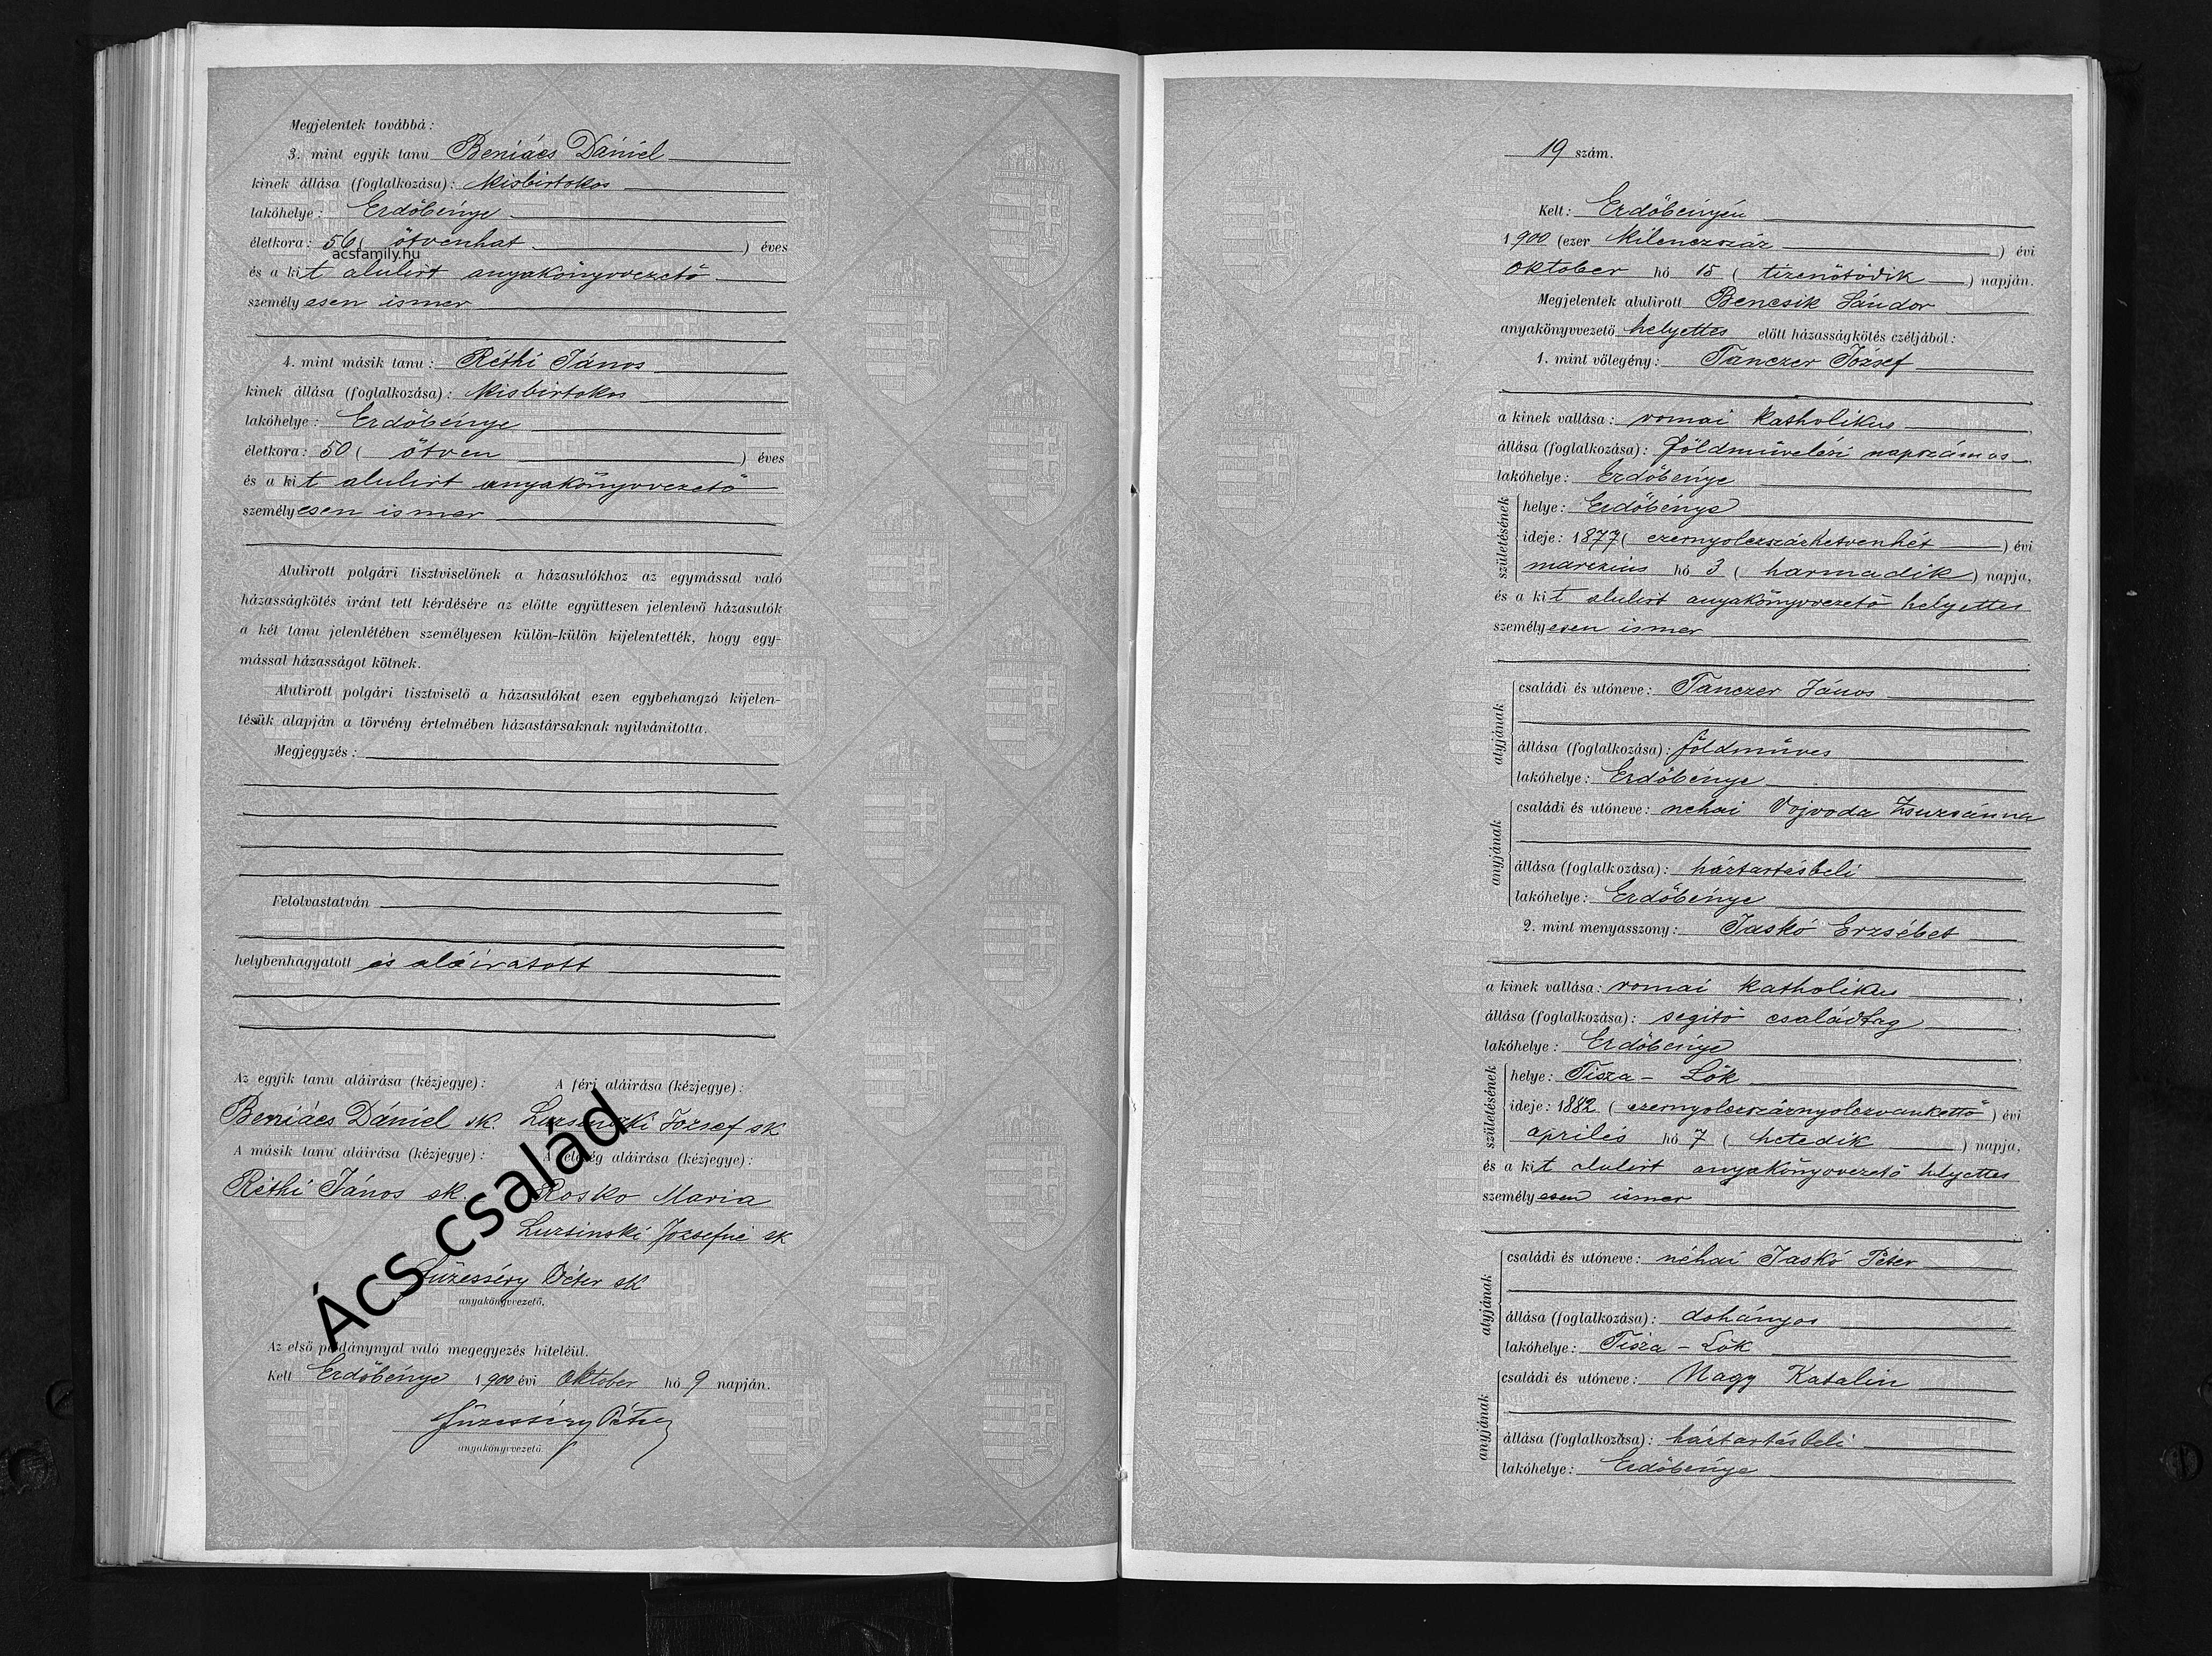 Megjelentek továbbá:
3. mint egyik tanu Beniács Dániel
kinek állása (foglalkozása): kisbirtokos
lakóhelye: Erdőbénye
életkora: 56 ( ötvenhat ) éves
acsfamily.hu
és a kit alulirt anyakönyvvezető
személyesen ismer
4. mint másik tanu: Réthi János
kinek állása (foglalkozása): kisbirtokos
lakóhelye: Erdőbénye
életkora: 50 ( ötven ) éves
és a kit alulirt anyakönyvvezető
személyesen ismer
Alulirott polgári tisztviselőnek a házasulókhoz az egymással való
házasságkötés iránt tett kérdésére az előtte együttesen jelenlevő házasulók
a két tanu jelenlétében személyesen külön-külön kijelentették, hogy egy-
mással házasságot kötnek.
Alulirott polgári tisztviselő a házasulókat ezen egybehangzó kijelen-
tésük alapján a törvény értelmében házastársaknak nyilvánitotta.
Megjegyzés:
Felolvastatván
helybenhagyatott és aláiratott
Az egyik tanu aláirása (kézjegye): A férj aláirása (kézjegye):
Beniács Dániel sk. József sk
A másik tanu aláirása (kézjegye): A feleség aláirása (kézjegye):
Réthi János sk. Rosko Maria
Lursinski Józsefné sk
Füzesséry Péter sk
anyakönyvvezető.
Ács család
Az első példánynyal való megegyezés hiteléül.
Kelt Erdőbénye 1900 évi Oktober hó 9 napján.
Füzesséry Péter
anyakönyvvezető.
19 szám.
Kelt: Erdőbényén
1900 (ezer kilenczszáz ) évi
oktober hó 15 ( tizenötödik ) napján.
Megjelentek alulirott Bencsik Sándor
anyakönyvvezető helyettes előtt házasságkötés czéljából:
1. mint vőlegény: Tanczer József
a kinek vallása: romai katholikus
állása (foglalkozása): földmüvelési napszámos
lakóhelye: Erdőbénye
születésének
helye: Erdőbénye
ideje: 1877 ( ezernyolczszázhetvenhét ) évi
marczius hó 3 ( harmadik ) napja,
és a kit alulirt anyakönyvvezető helyettes
személyesen ismer
atyjának
családi és utóneve: Tanczer János
állása (foglalkozása): földmüves
lakóhelye: Erdőbénye
anyjának
családi és utóneve: néhai Vojvoda Zsuzsánna
állása (foglalkozása): háztartásbeli
lakóhelye: Erdőbénye
2. mint menyasszony: Jaskó Erzsébet
a kinek vallása: romai katholikus
állása (foglalkozása): segitő családtag
lakóhelye: Erdőbénye
születésének
helye: Tisza-Lök
ideje: 1882 ( ezernyolczszáznyolczvankettő ) évi
április hó 7 ( hetedik ) napja,
és a kit alulirt anyakönyvvezető helyettes
személyesen ismer
atyjának
családi és utóneve: néhai Jaskó Péter
állása (foglalkozása): dohányos
lakóhelye: Tisza-Lök
anyjának
családi és utóneve: Nagy Katalin
állása (foglalkozása): háztartásbeli
lakóhelye: Erdőbénye